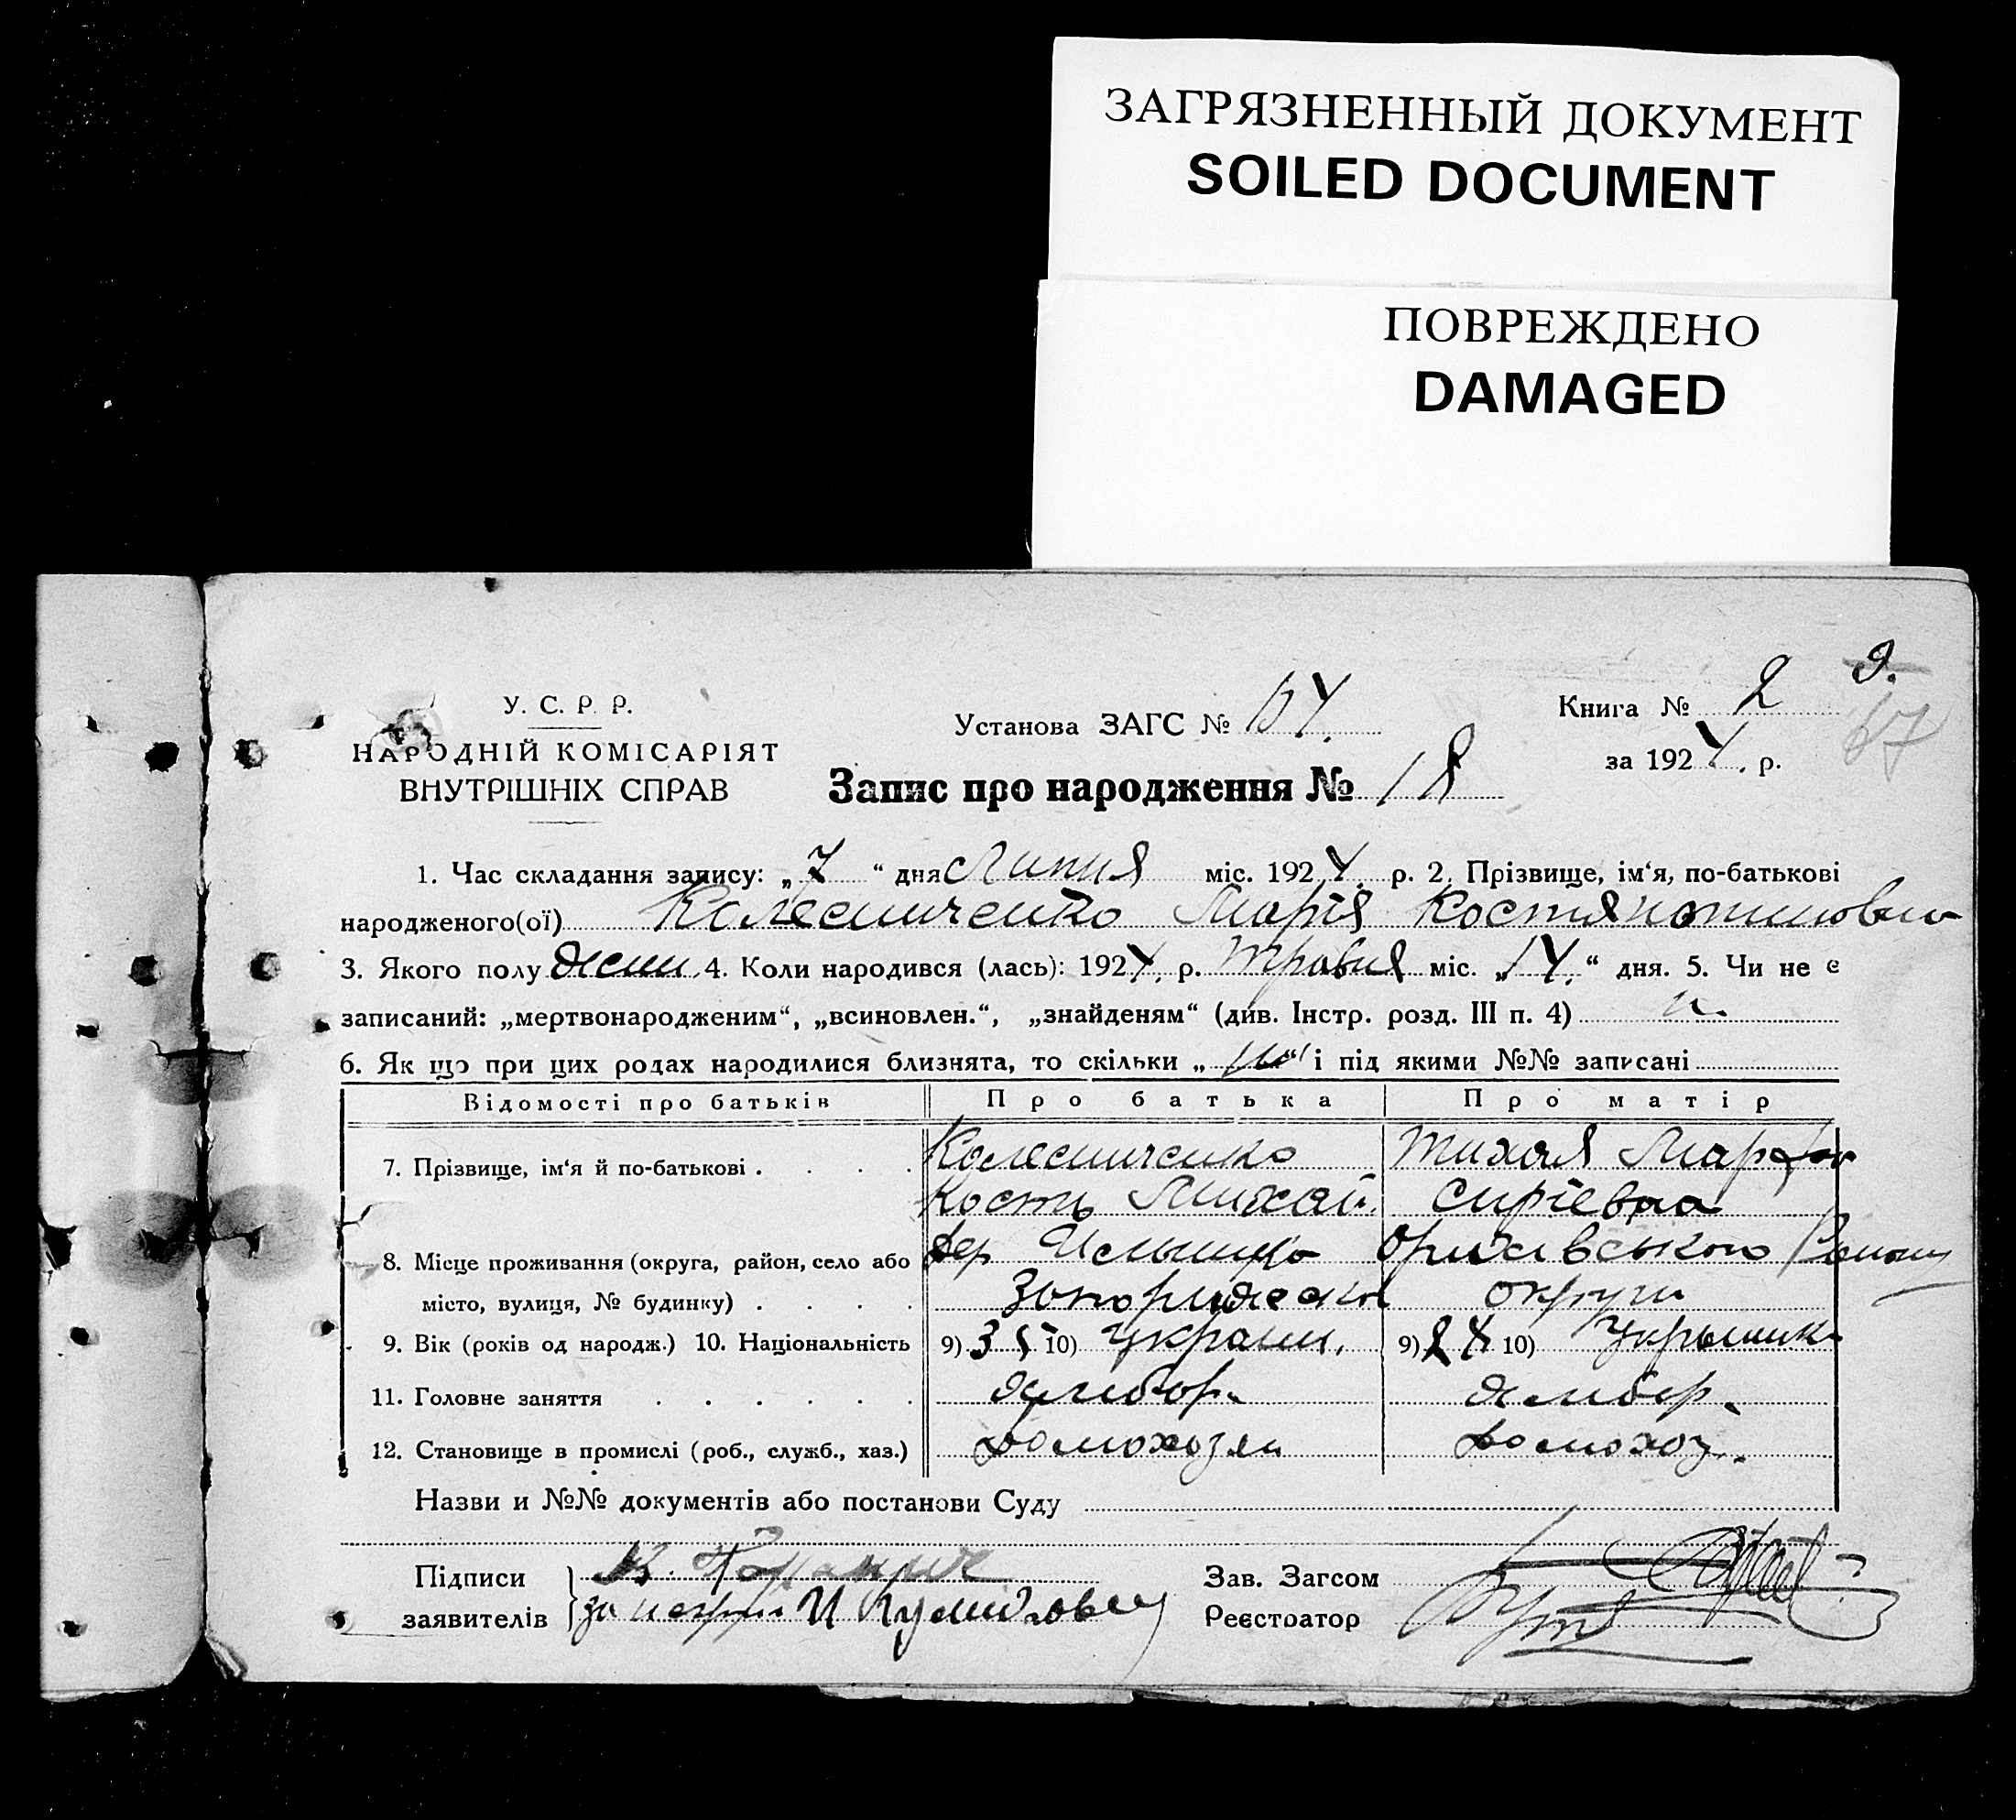 ЗАГРЯЗНЕННЫЙ ДОКУМЕНТ
SOILED DOCUMENT
ПОВРЕЖДЕНО
DAMAGED
9.
67
У. С. Р. Р.
НАРОДНІЙ КОМІСАРІЯТ
ВНУТРІШНІХ СПРАВ
Установа ЗАГС №
Книга № 2
за 1924. р.
Запис про народження № 18
1. Час складання запису: „ 7 “ дня Липня міс. 1924. р. 2. Прізвище, ім‘я, по-батькові
народженого(ої) Колесниченко Марія Костянтиновна
3. Якого полу жени 4. Коли народився (лась): 1924. р. Травня міс. „14.“ дня. 5. Чи не є
записаний: „мертвонародженим“, „всиновлен.“, „знайденям“ (див. Інстр. розд. III п. 4) н.
6. Як що при цих родах народилися близнята, то скільки „ “ і під якими №№ записані
Відомості про батьків Про батька Про матір
7. Прізвище, ім‘я й по-батькові . . . . Колесниченко Тихая Марфа
Кость Михай. Сиргіевна
8. Місце проживання (округа, район, село або дер Оріхівського Району
місто, вулиця, № будинку) . . . . Запоріжской округи
9. Вік (років од народж.) 10. Національність 9) 35 10) Украін. 9) 24 10) Украинка
11. Головне заняття . . . . . . хлибор. хлибор.
12. Становище в промислі (роб., служб., хаз.) домохозяи домохоз.
Назви и №№ документів або постанови Суду
Підписи К.
заявителів за негр И
Зав. Загсом
Реєстратор